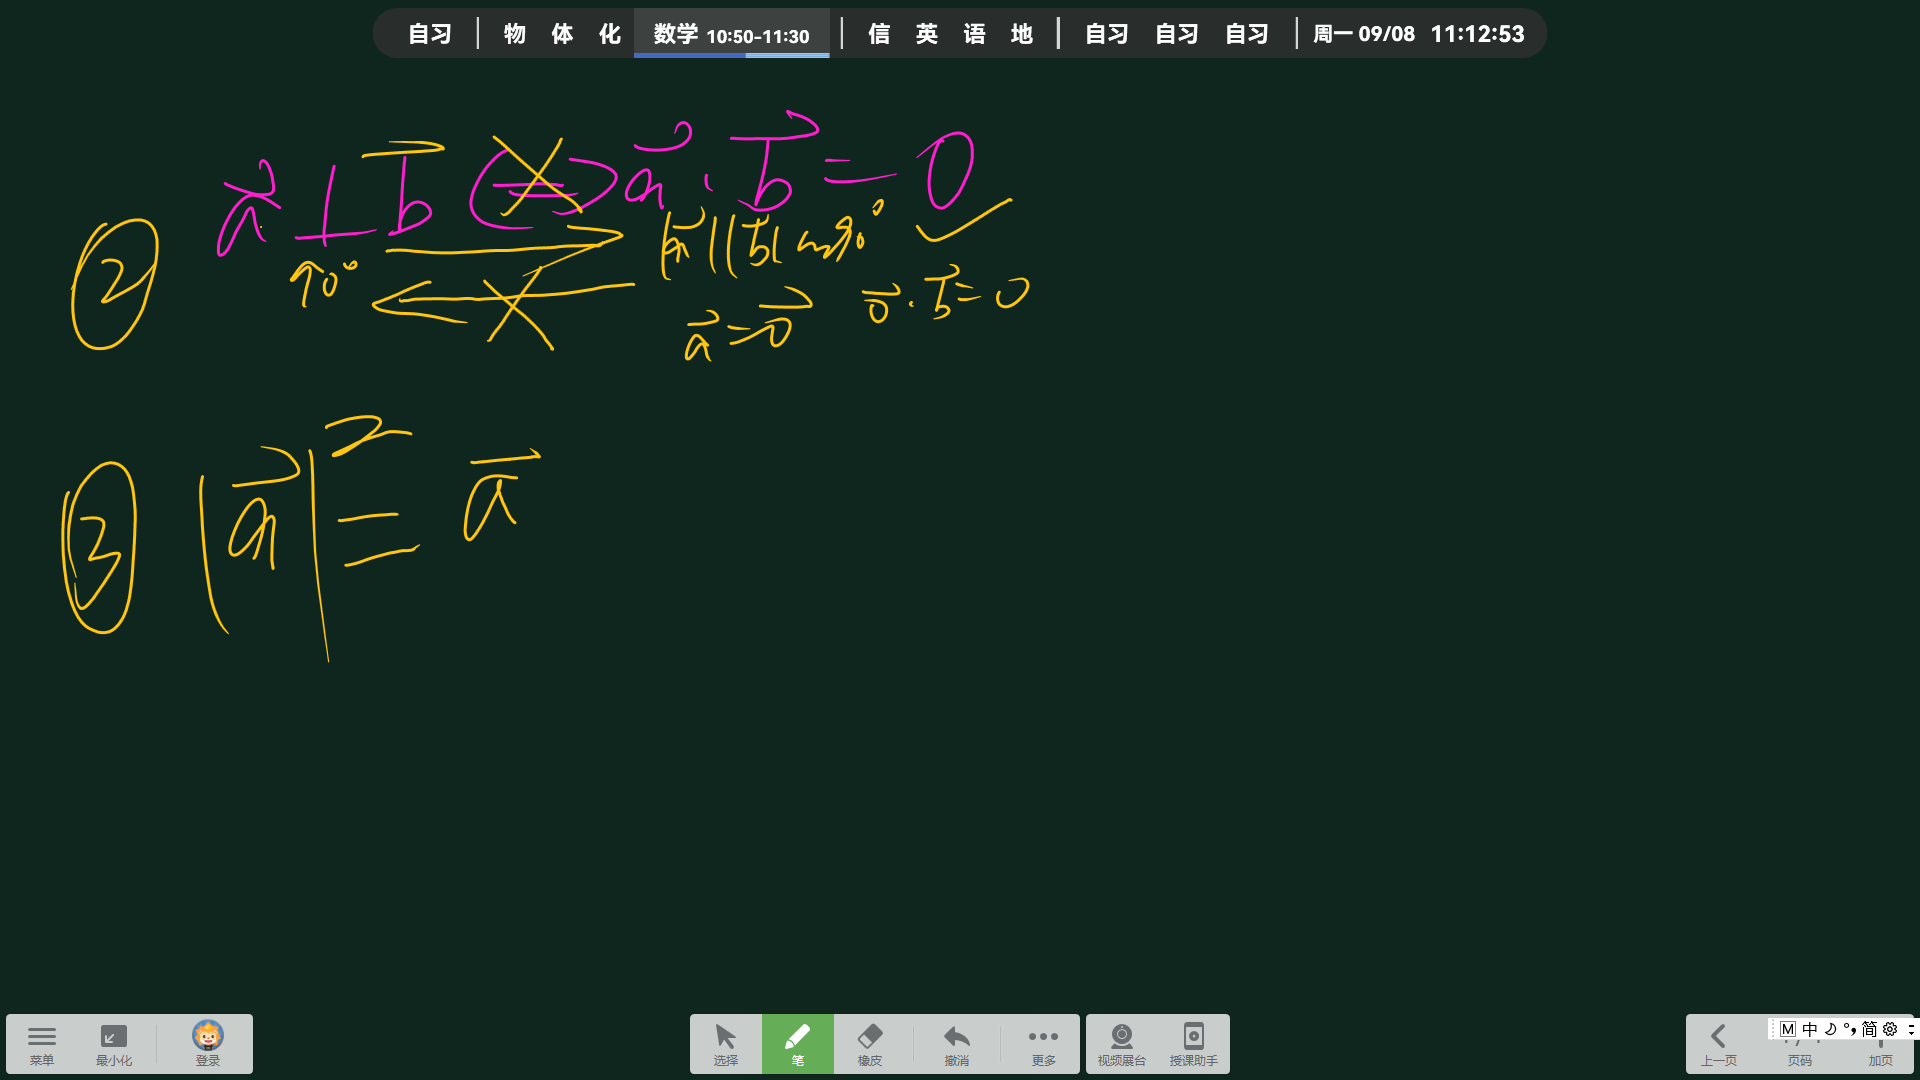 自习 | 物 体 化 数学 10:50-11:30 | 信 英 语 地 | 自习 自习 自习 | 周一 09/08 11:12:53
② a⃗⊥b⃗ ⇔ a⃗·b⃗=0
90° |a⃗||b⃗|cos90°
a⃗=0⃗ 0⃗·b⃗=0
③ |a⃗|²=a⃗
菜单 最小化 登录 选择 笔 橡皮 撤消 更多 视频展台 授课助手 上一页 页码 加页
M 中 简